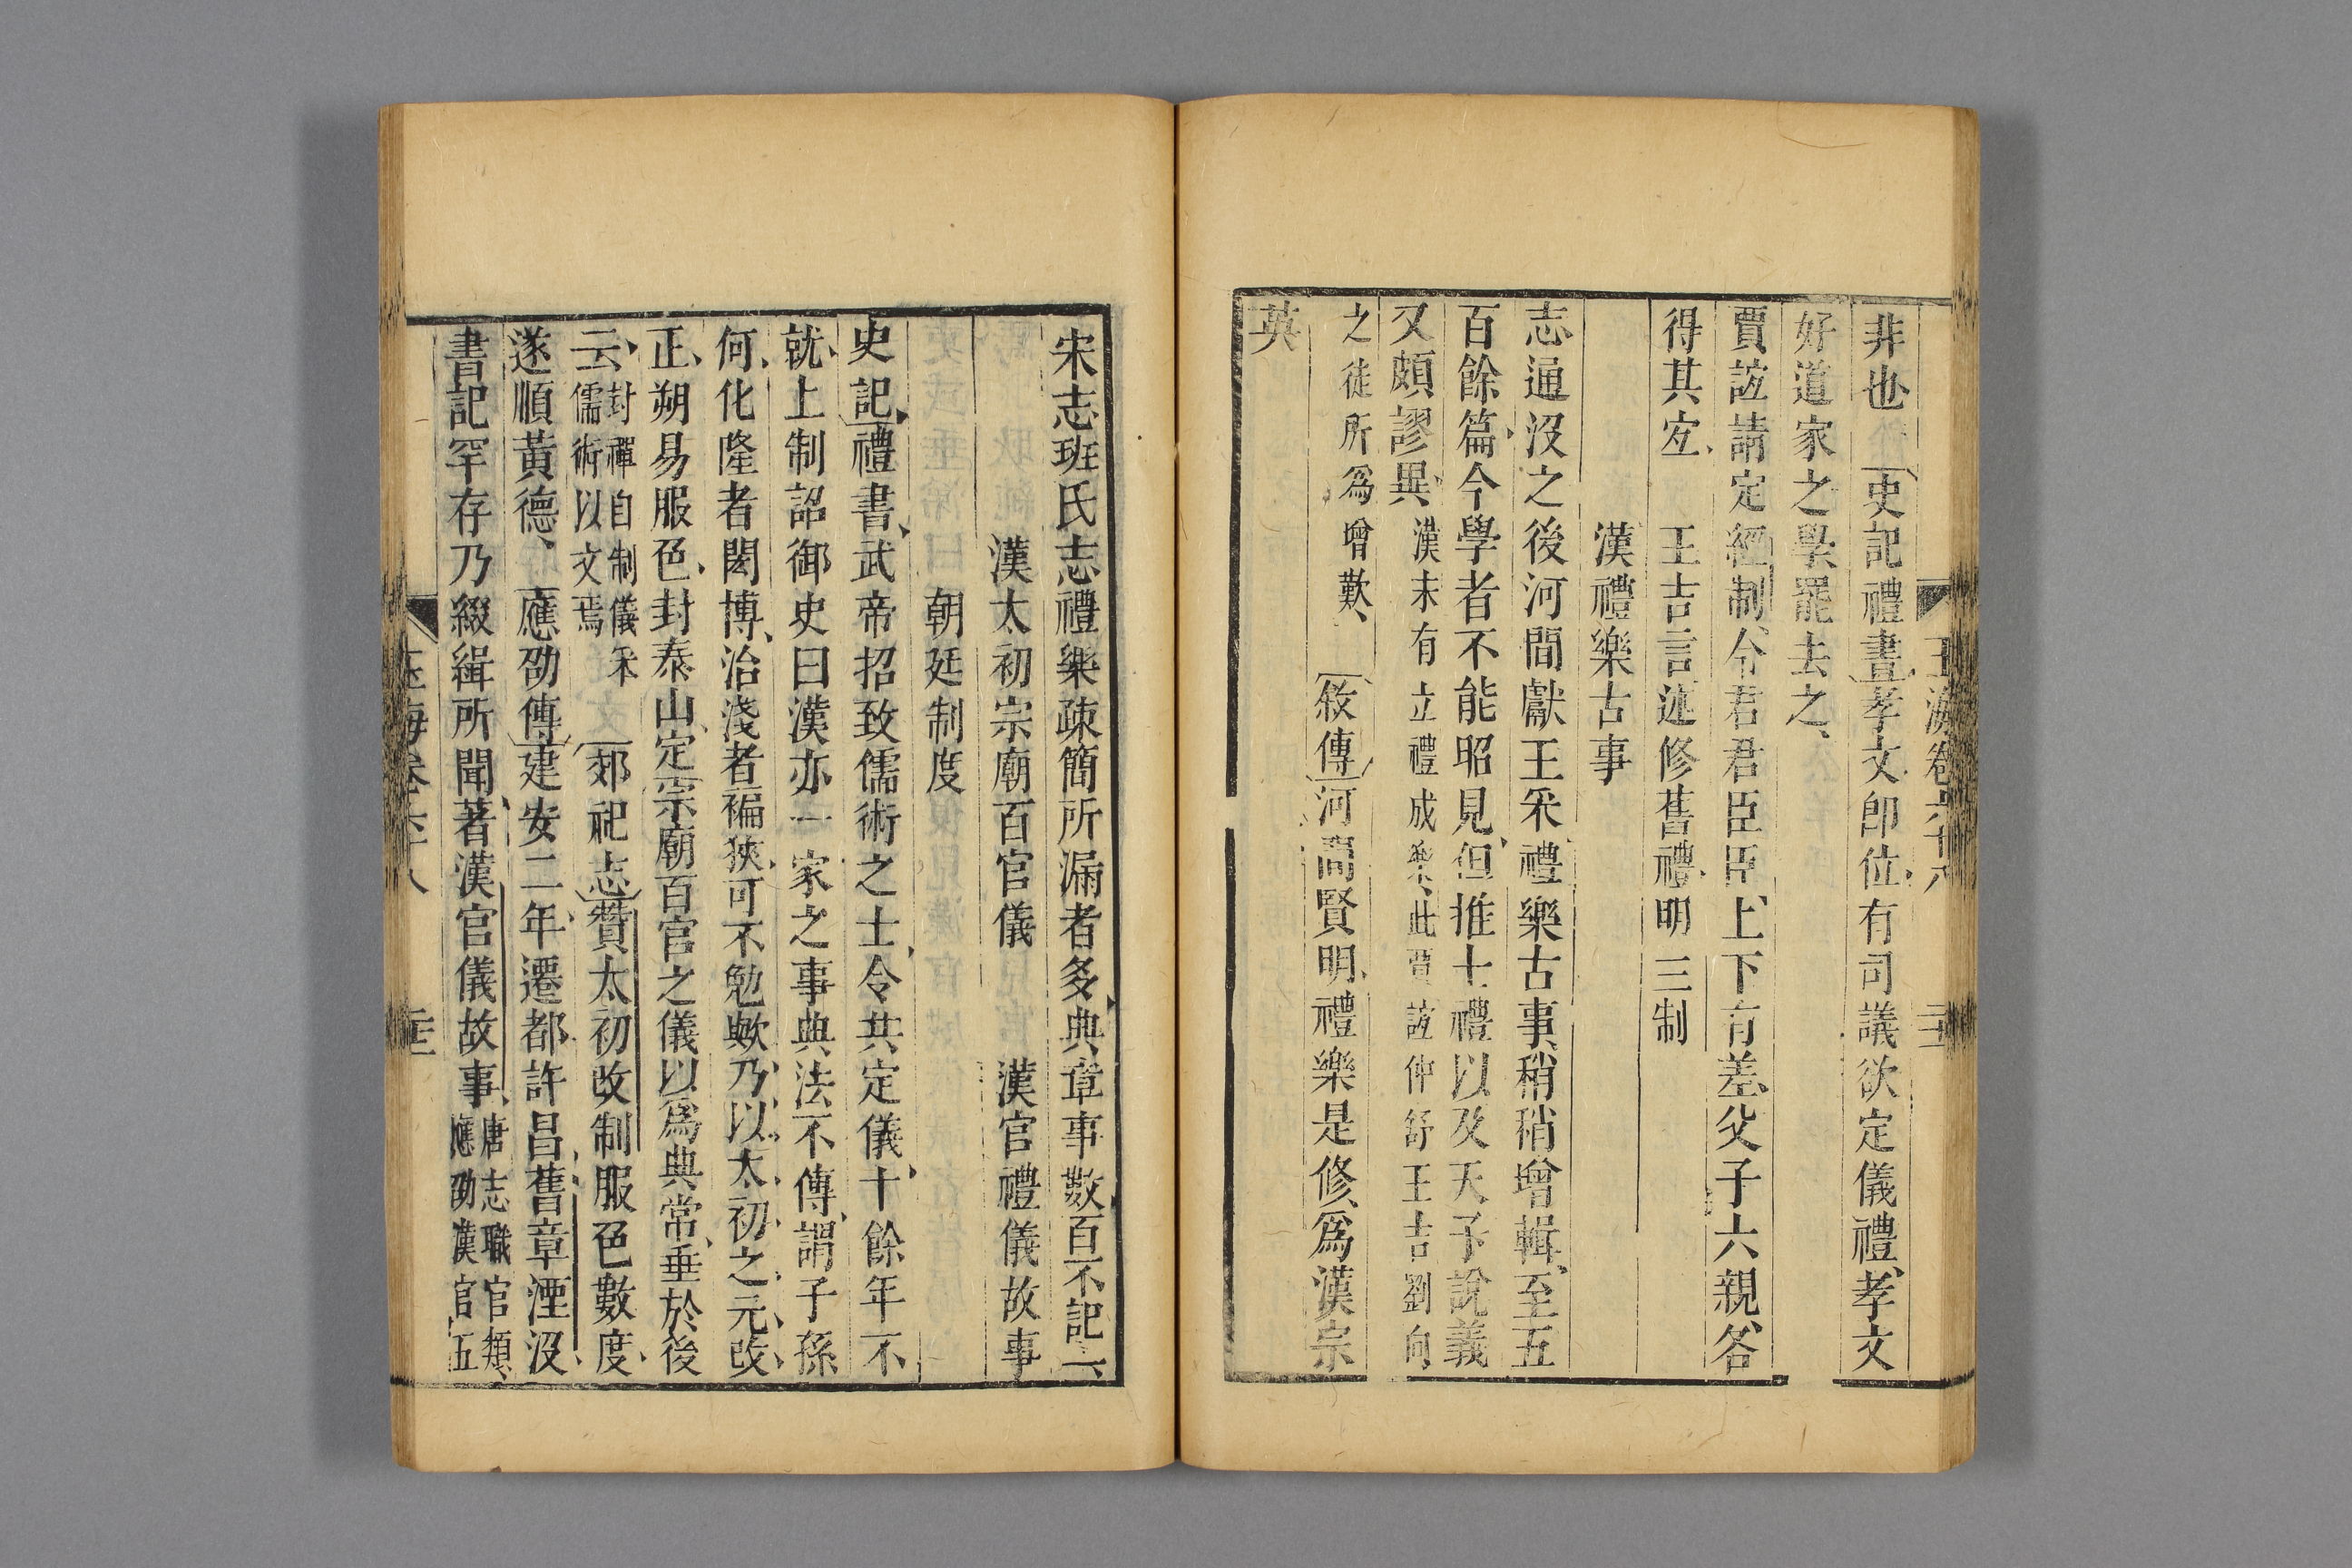 非也 史記禮書孝文即位有司議欲定儀禮孝文
好道家之學罷去之
賈誼請定經制令君君臣臣上下有差父子六親各
得其宐 王吉言述修舊禮明三制
漢禮樂古事
志通沒之後河間獻王采禮樂古事稍稍增輯至五
百餘篇今學者不能昭見但推士禮以及天子說義
又頗謬異 漢末有立禮成樂此賈誼仲舒王吉劉向
之徒所爲增歎 敘傳河間賢明禮樂是修爲漢宗
英
宋志班氏志禮樂疎簡所漏者多典章事數百不記一
漢太初宗廟百官儀 漢官禮儀故事
朝廷制度
史記禮書武帝招致儒術之士令共定儀十餘年不
就上制詔御史曰漢亦一家之事典法不傳謂子孫
何化隆者閎博治淺者褊狹可不勉歟乃以太初之元改
正朔易服色封泰山定宗廟百官之儀以爲典常垂於後
云 封禪自制儀采儒術以文焉 郊祀志贊太初改制服色數度
遂順黃德 應劭傳建安二年遷都許昌舊章湮沒
書記罕存乃綴緝所聞著漢官儀故事 唐志職官類應劭漢官五